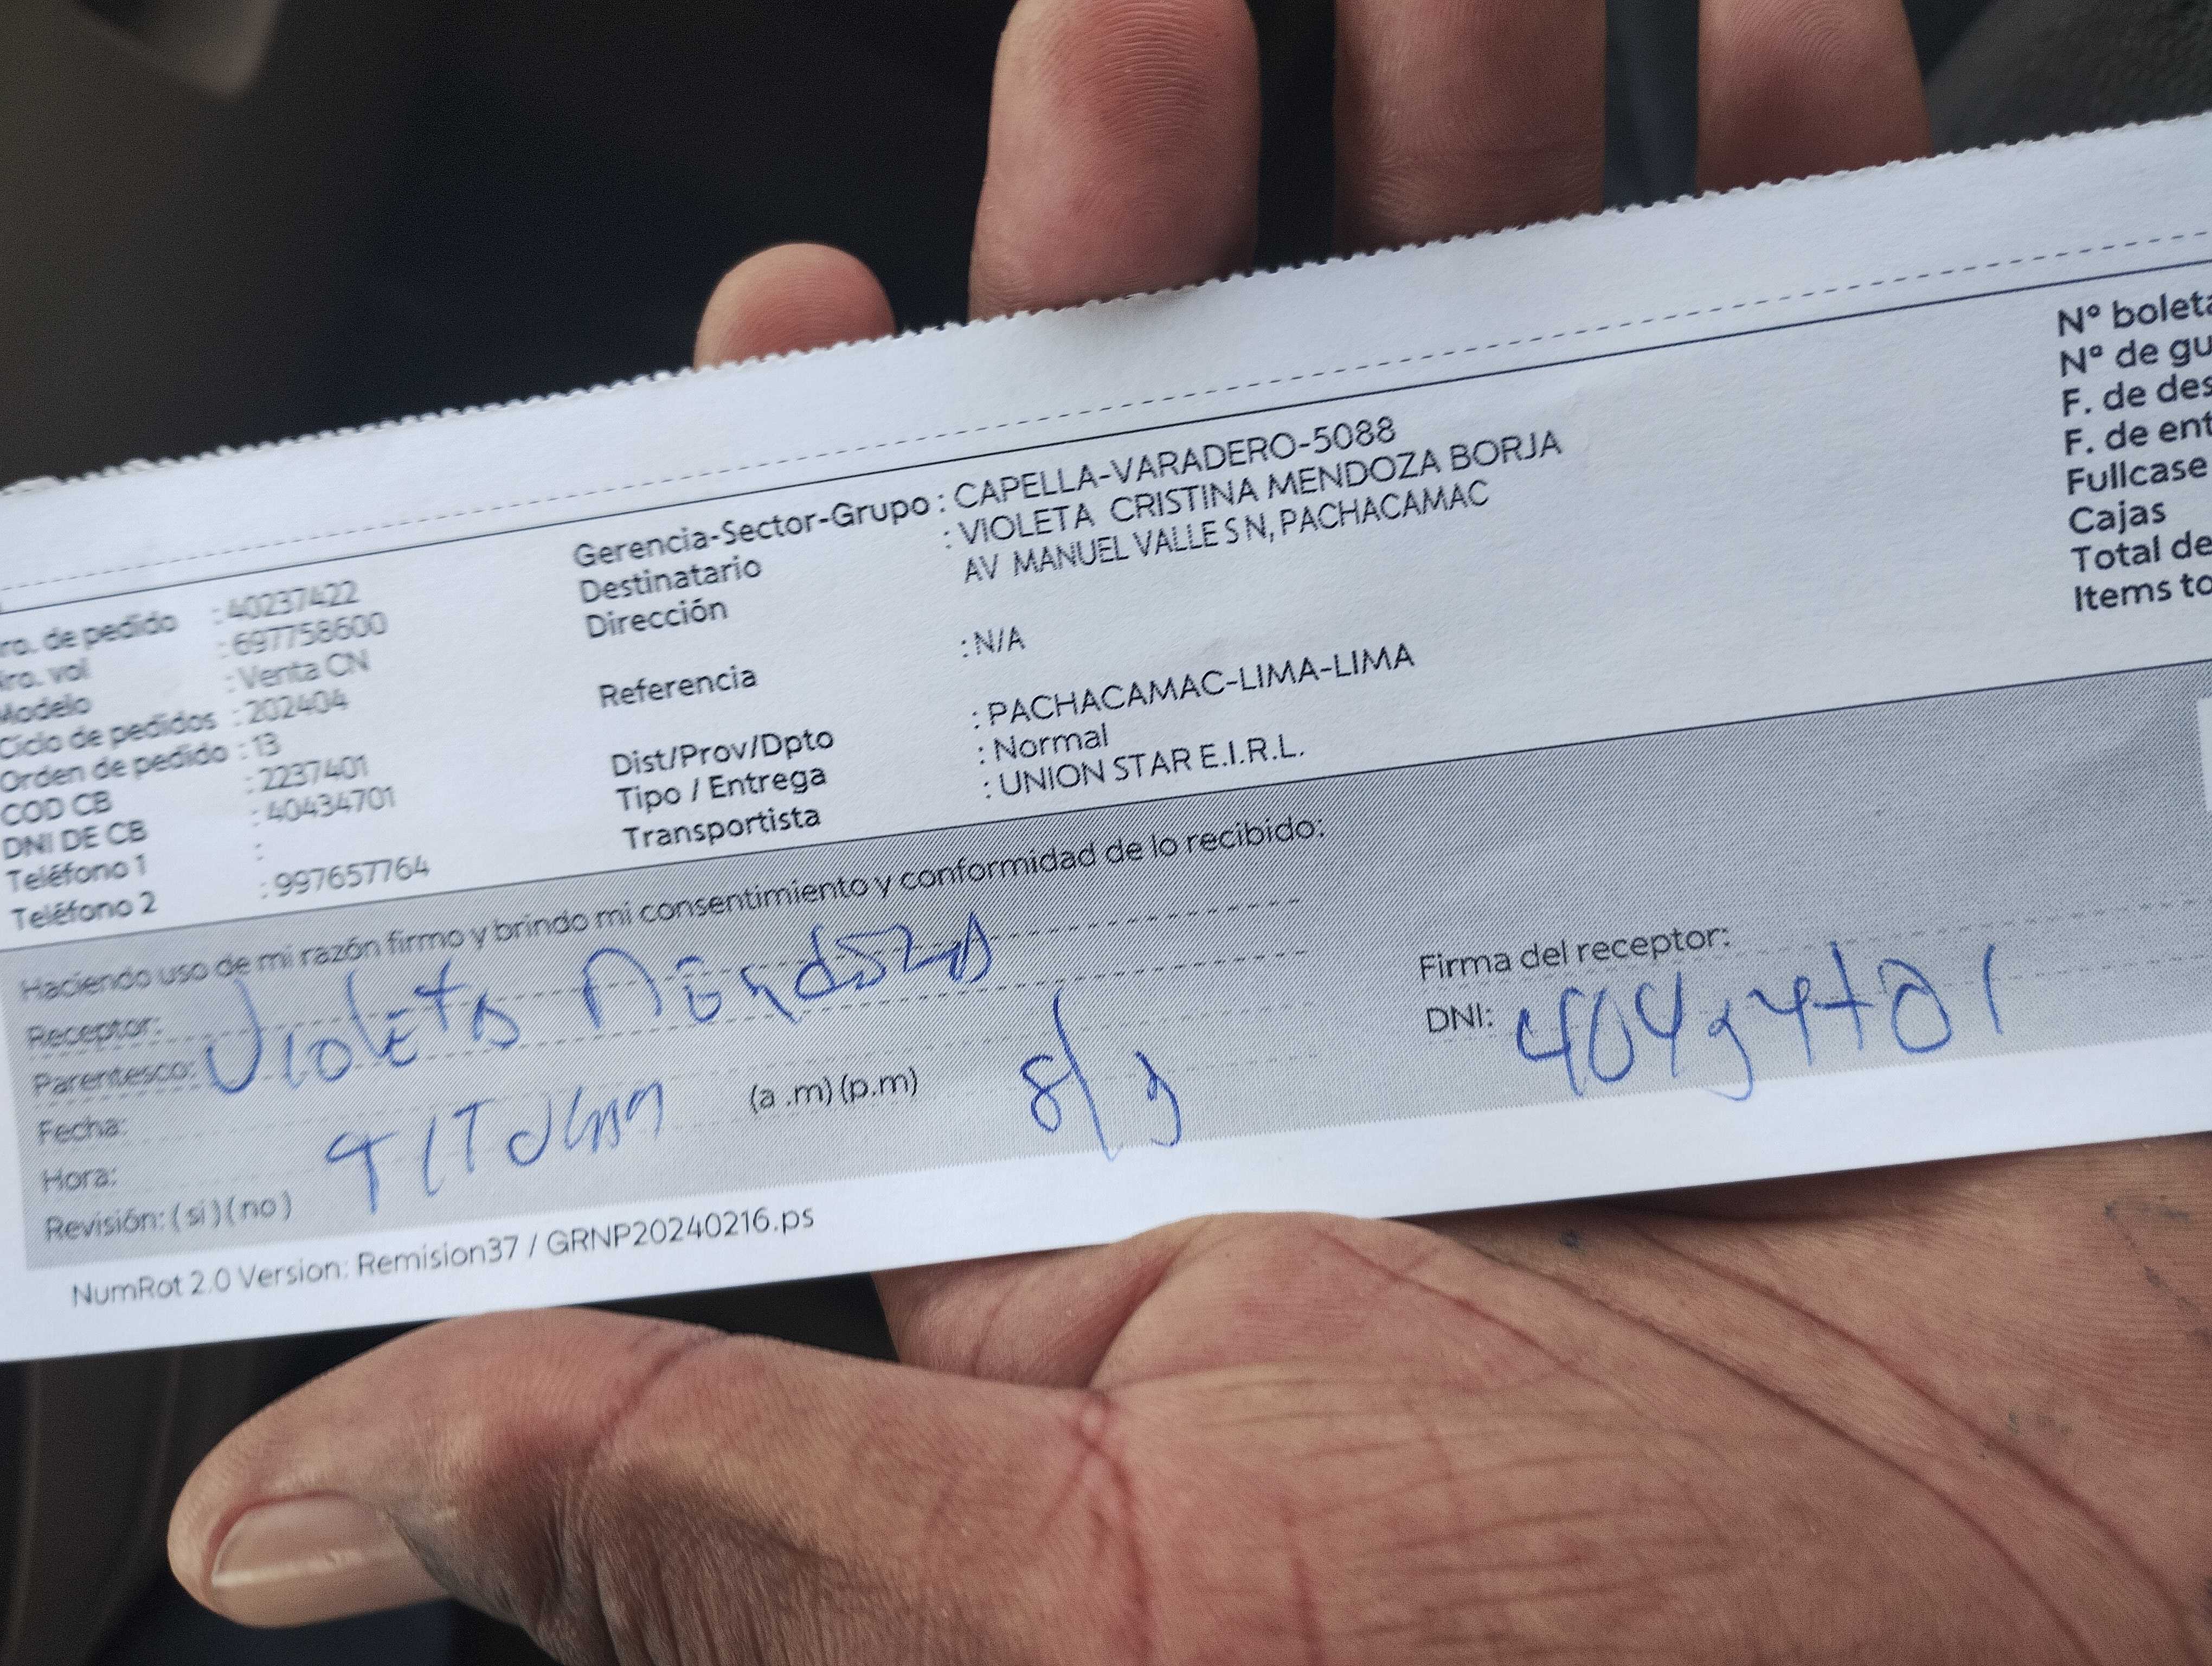 Nro. de pedido : 40237422
Nro. vol : 697758600
Modelo : Venta CN
Ciclo de pedidos : 202404
Orden de pedido : 13
COD CB : 2237401
DNI DE CB : 40434701
Teléfono 1 :
Teléfono 2 : 997657764
Gerencia-Sector-Grupo : CAPELLA-VARADERO-5088
Destinatario : VIOLETA CRISTINA MENDOZA BORJA
Dirección AV MANUEL VALLE S N, PACHACAMAC
Referencia : N/A
Dist/Prov/Dpto : PACHACAMAC-LIMA-LIMA
Tipo / Entrega : Normal
Transportista : UNION STAR E.I.R.L.
N° boleta
N° de gu
F. de des
F. de ent
Fullcase
Cajas
Total de
Items to
Haciendo uso de mi razón firmo y brindo mi consentimiento y conformidad de lo recibido:
Receptor: Violeta Mendoza
Parentesco:
Fecha:
Hora: (a .m) (p.m) 8/3
Revisión: ( si ) ( no )
Firma del receptor:
DNI: 40434701
NumRot 2.0 Version: Remision37 / GRNP20240216.ps